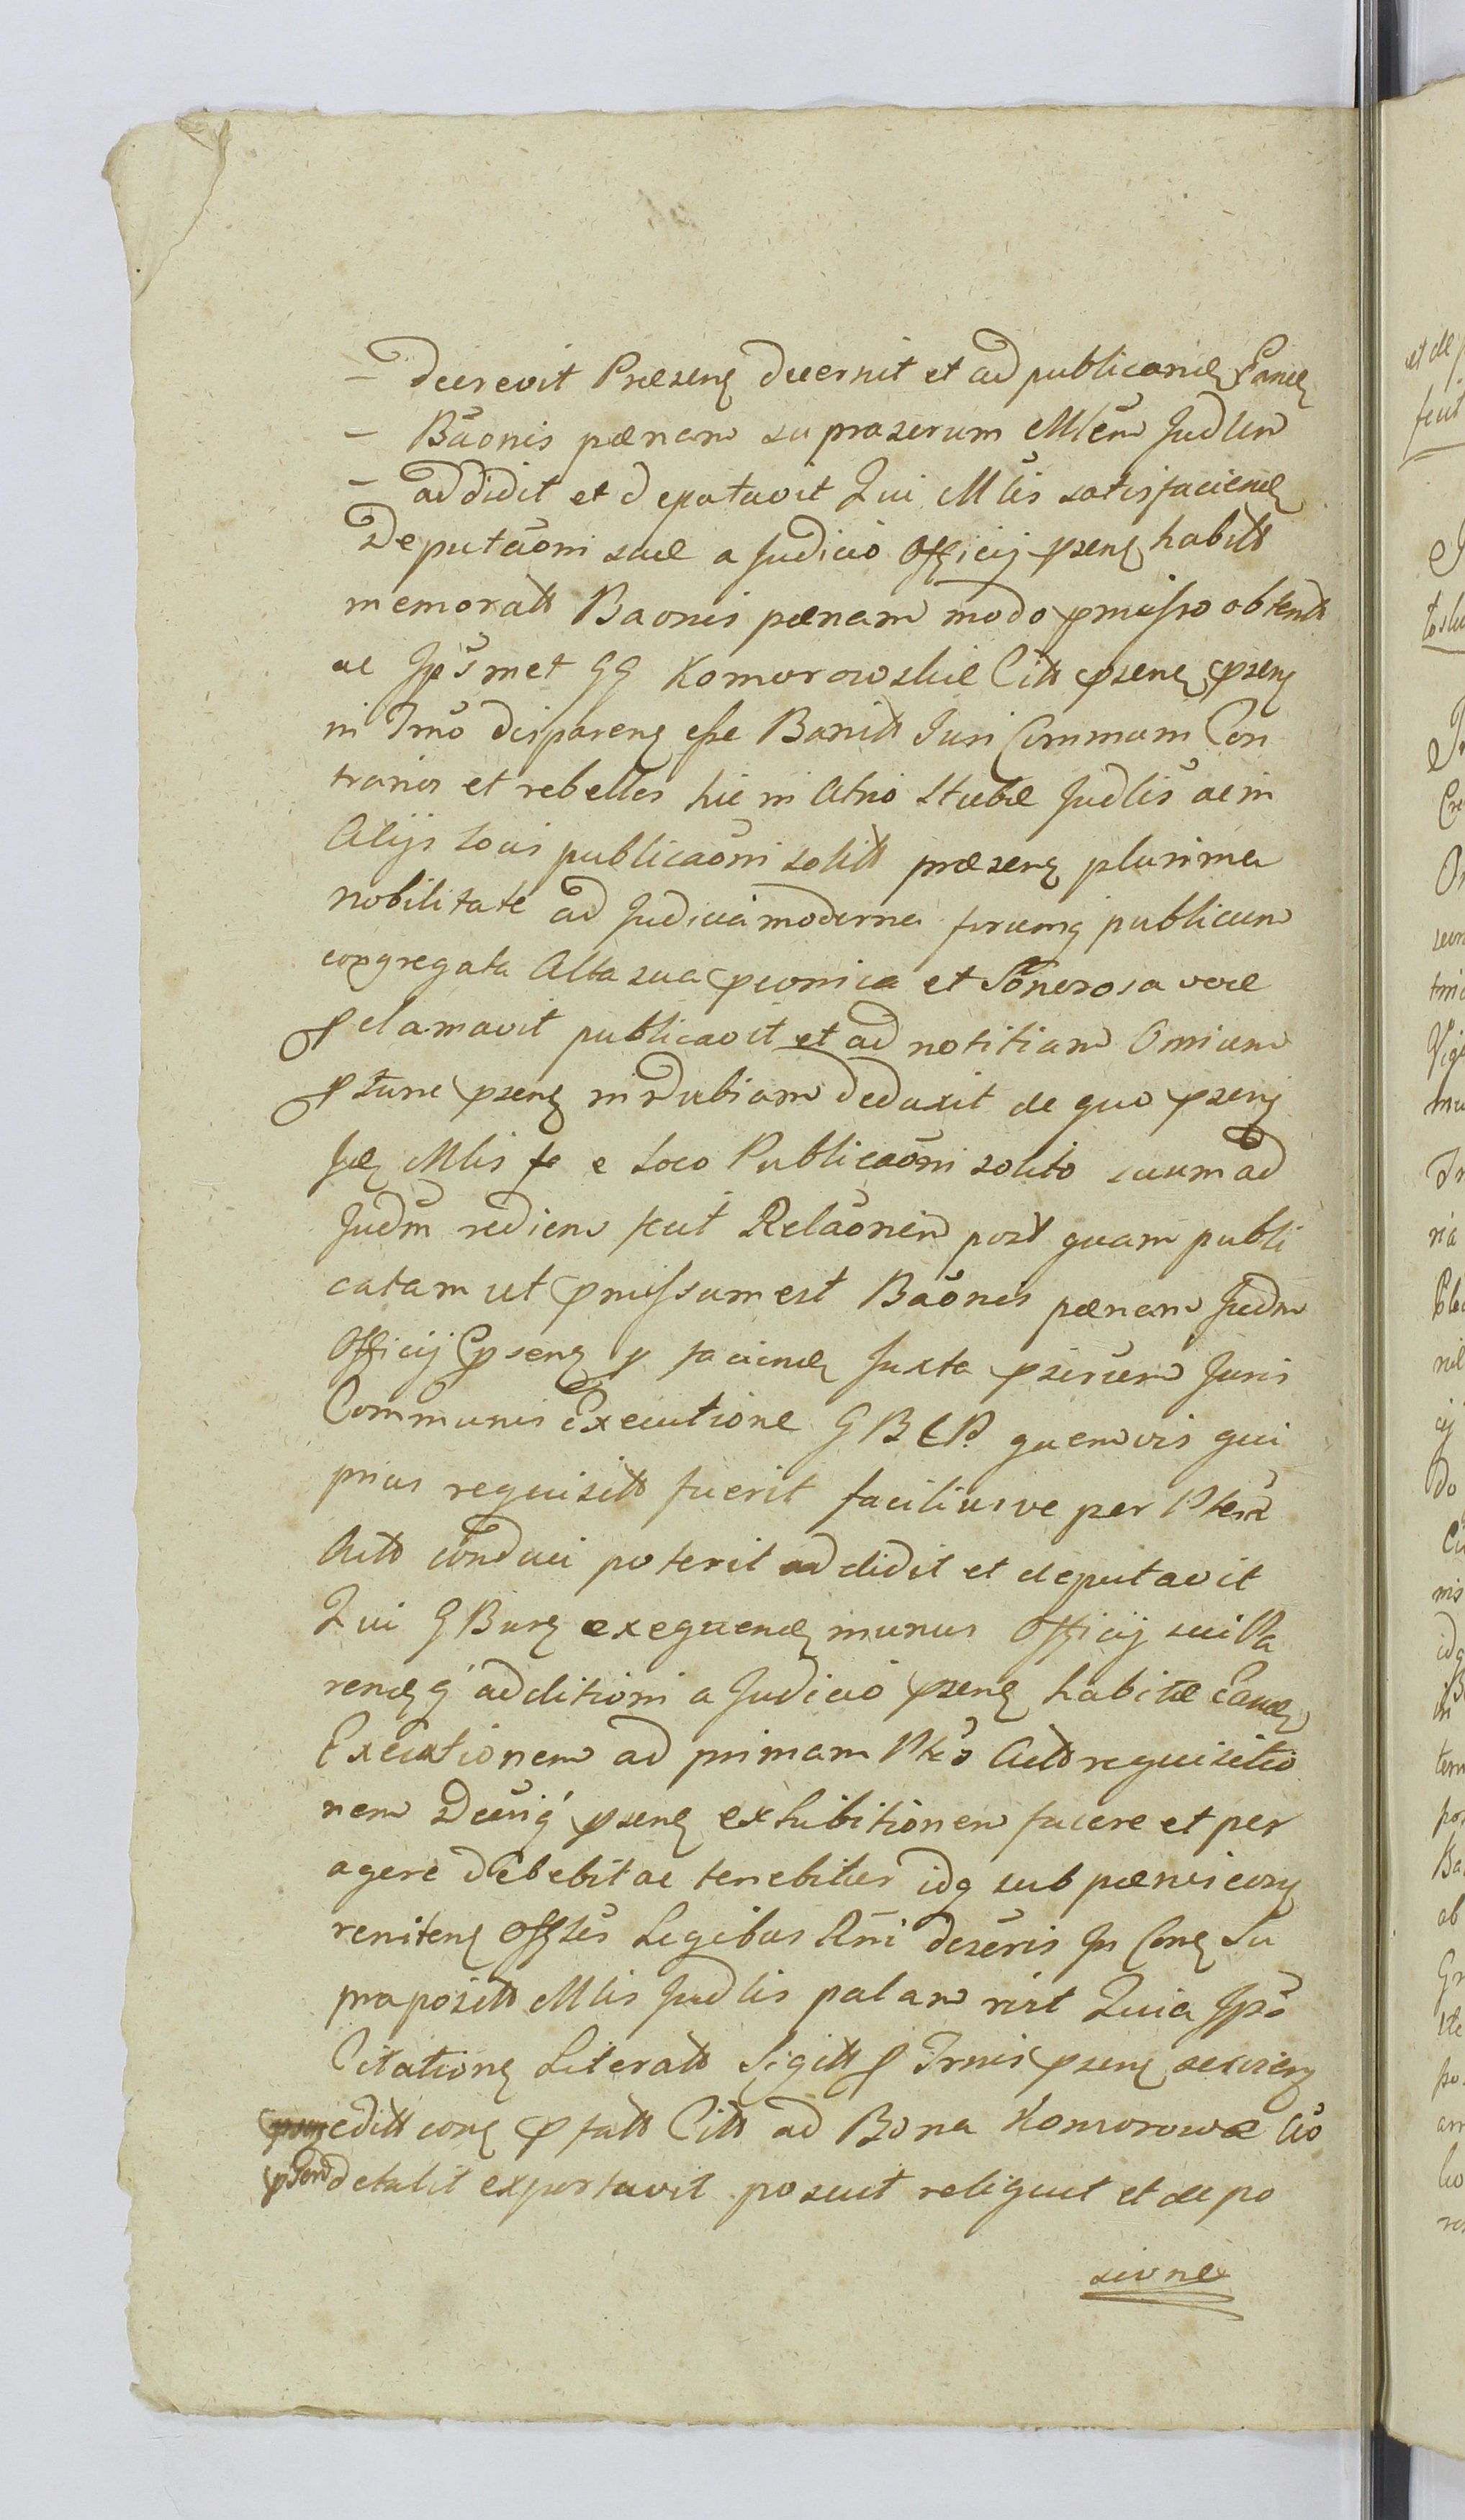 – decrevit Præsens decernit et ad publicand Eand
– Baonis pœnam supraserum Mlem Judlem
– addidit et deputavit Qui Mlis satisfaciend
Deputaoni suæ a Judicio Officij psens habitt
memoratt Baonis pœnam modo pmisso obtentt
ac Jpsmet GG Komorowskie Citt psens psens
in Trno disparens esse Banitt Juri Commum Con
trarios et rebelles hic in Atrio Stubæ Judlis ac in
Alijs Locis publicaoni solitt præsens plurima
nobilitate ad Judicia moderna forumq publicum
congregata Alta sua pconica et Sonorosa voce
pclamavit publicavit et ad notitiam Omnium
ptunc psens indubiam deduxit de quo psens
Jdem Mlis e Loco Publicaoni solito suum ad
Judm rediens fecit Relaonem post quam publi
catam ut pmissum est Baonis pœnam Judm
Officij psens p faciend Juxta pserum Juris
Communis Executione G B C P quemvis qui
prius requisitt fuerit faciliusve per Ptem
Actt conduci poterit addidit et deputavit
Qui G Burg exequend munus Officij sui Pa
rendq additioni a Judicio psens habitæ Eand
Executionem ad primam Ptis Actt requisitio
nem Decriq psens exhibitionem facere et per
agere debebit ac tenebitur idq sub pœnis eorq
renitens Offles Legibus Rni deseris In Cons Su
praposittt Mlis Judlis palam rist Quia Jpse
Citations Literatt Sigitt p Trnis psens deservien
editt cons pfatt Citt ad Bona Komorowæ Cio
detulit exportavit posuit reliquit et de po
sione